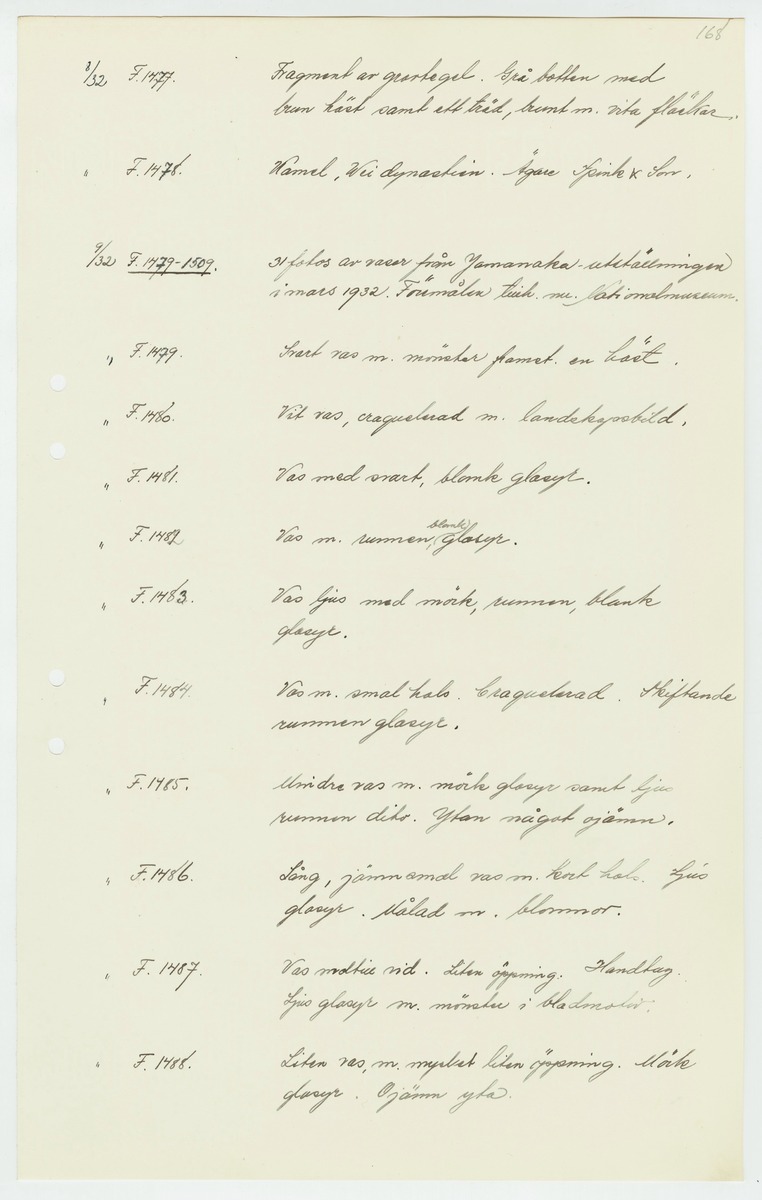 168
8/32 F. 1477. Fragment av gravtegel. Grå botten med
brun häst samt ett träd, brunt m. vita fläckar.
" F. 1478. Kamel, Wei dynastien. Ägare Spink & Son.
9/32 F. 1479-1509. 31 fotos av vaser från Yamanaka-utställningen
i mars 1932. Föremålen tillh. nu Nationalmuseum.
" F. 1479. Svart vas m. mönster framst. en häst.
" F. 1480. Vit vas, craquelerad m. landskapsbild.
" F. 1481. Vas med svart, blank glasyr.
" F. 1482 Vas m. runnen, blank glasyr.
" F. 1483. Vas ljus med mörk, runnen, blank
glasyr.
" F. 1484. Vas m. smal hals. Craquelerad. Skiftande
runnen glasyr.
" F. 1485. Mindre vas m. mörk glasyr samt ljus
runnen dito. Ytan något ojämn.
" F. 1486. Lång, jämnsmal vas m. kort hals. Ljus
glasyr. Målad m. blommor.
" F. 1487. Vas nedtill vid. Liten öppning. Handtag.
Ljus glasyr m. mönster i bladmotiv.
" F. 1488. Liten vas, m. mycket liten öppning. Mörk
glasyr. Ojämn yta.